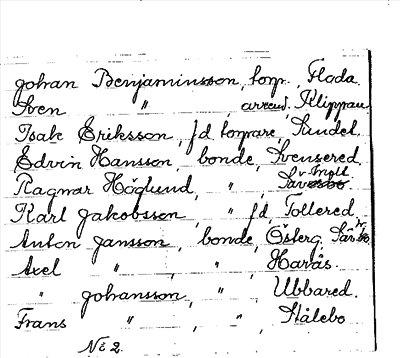 Johan Benjaminsson, torp., Floda.
Sven " arrend. Klippan
Isak Eriksson, fd torpare, Lindel.
Edvin Hansson, bonde, Svensered.
Ragnar Höglund, " ,
Karl Jakobsson, " fd, Tollered,
Anton Jansson, bonde, Österg.
Axel " , " , Harås.
" Johansson, " , Ubbared.
Frans " , " , Stålebo
No 2.